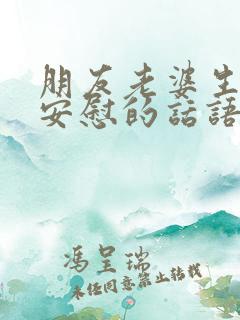 朋友老婆生
安慰的话语
冯呈瑞
未经同意禁止转载